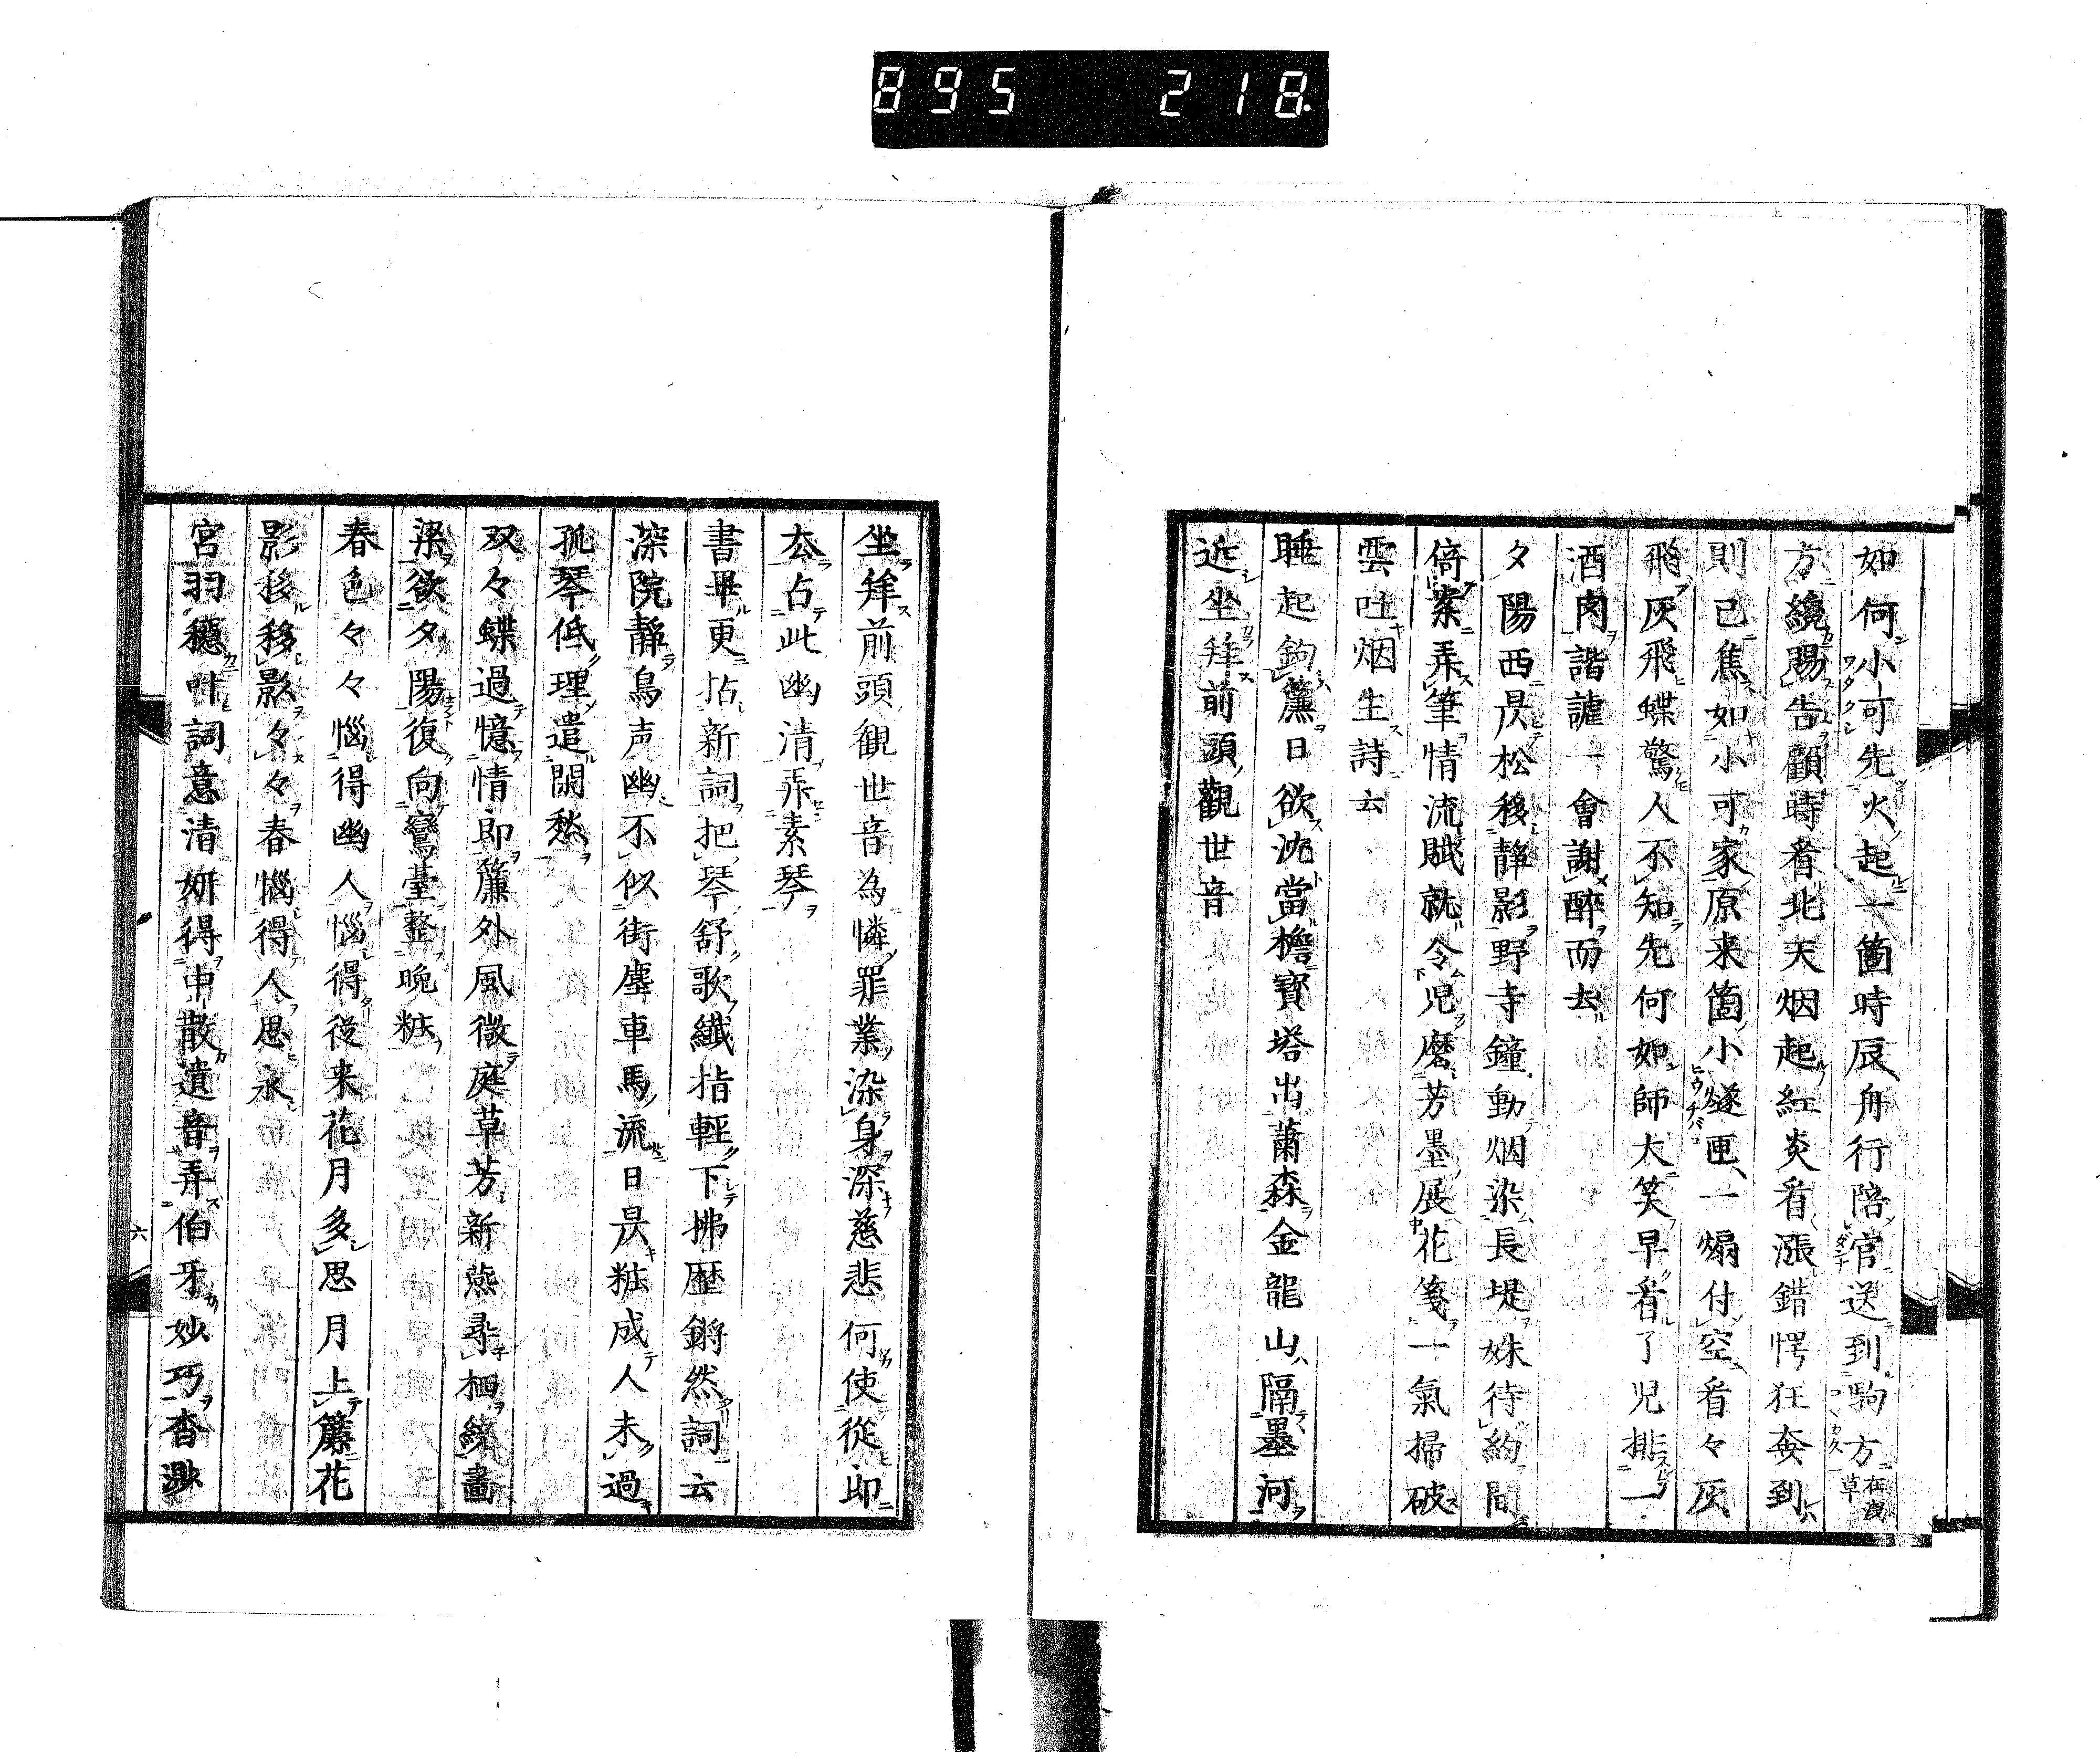 895 218.
如何小可先火起一箇時辰舟行陪官送到駒方在浅草
方纔賜告顧時看北天烟起紅炎看漲錯愕狂奔到
則已焦如小可家原来箇小燧匣一煽付空看々灰
飛灰飛蝶驚人不知先何如師大笑早看了児排一
酒肉諧謔一會謝醉而去
夕陽西昃松移静影野寺鐘動烟染長堤姝待約間
倚案弄筆情流賦就令児磨芳墨展花箋一氣掃破
雲吐烟生詩云
睡起鉤簾日欲沈當檐寳塔出蕭森金龍山隔墨河
近坐拜前頭觀世音
坐拜前頭観世音為憐罪業染身深慈悲何使從印
去占此幽清弄素琴
書畢更拈新詞把琴舒歌纖指輕下拂歴鏘然詞云
深院靜鳥声幽不似街塵車馬流日昃粧成人未過
孤琴低理遣閑愁
双々蝶過憶情即簾外風微庭草芳新燕尋栖繞畫
梁欲夕陽復向鸞臺整晩粧
春色々々惱得幽人惱得後来花月多思月上簾花
影移移影々々春惱得人思永
宮羽穩叶詞意清妍得中散遺音弄伯牙妙巧杳渺
六